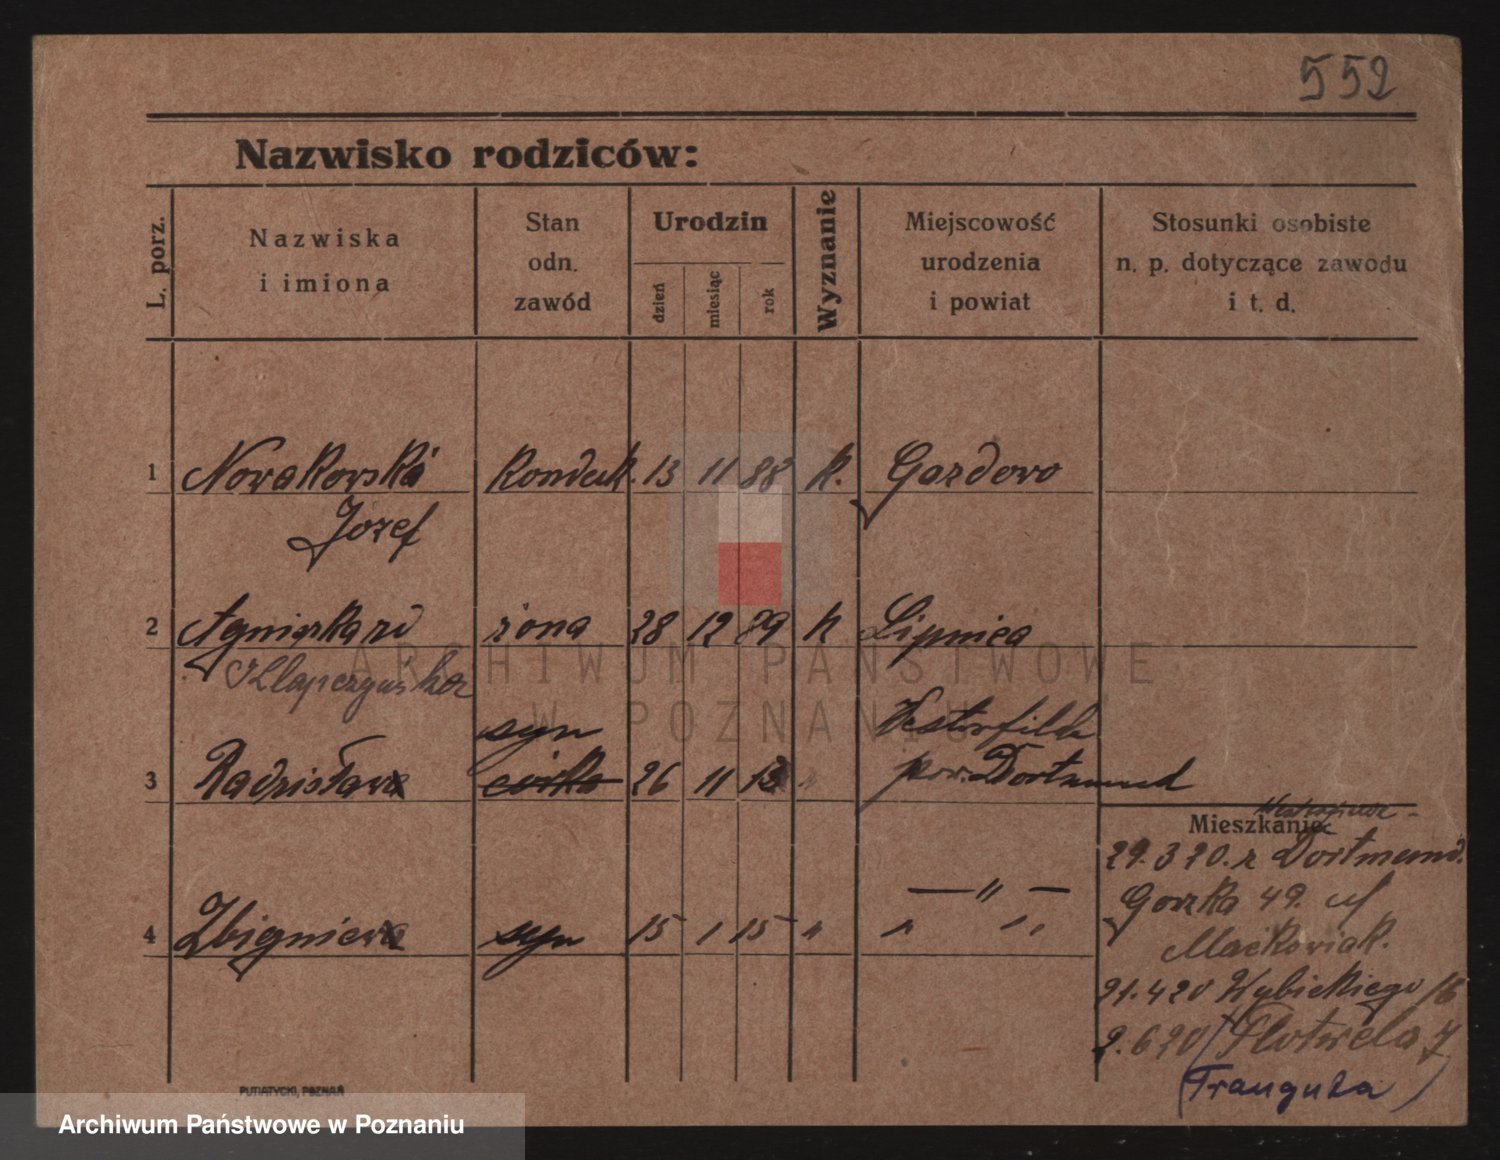 552
Nazwisko rodziców:
L. porz.
Nazwiska
i imiona
Stan
odn.
zawód
Urodzin
dzień
miesiąc
rok
Wyznanie
Miejscowość
urodzenia
i powiat
Stosunki osobiste
n. p. dotyczące zawodu
i t. d.
1 Nowakowski 13 11 88 k. Gozdowo
Józef
2 Agnieszka żona 28 12 89 k Lipnica
syn
3 Radzisława córka 26 11 13 " pow. Dortmund
Mieszkanie
29.3 20. z Dortmund.
— " —
Gorzka 49. uf
4 Zbigniew syn 15 1 15 " " "
Maćkowiak.
21.4 20 Wybickiego
2.6 20 Flotwela 7
(Traugutta)
PUTIATYCKI, POZNAŃ
ARCHIWUM PAŃSTWOWE
W POZNANIU
Archiwum Państwowe w Poznaniu